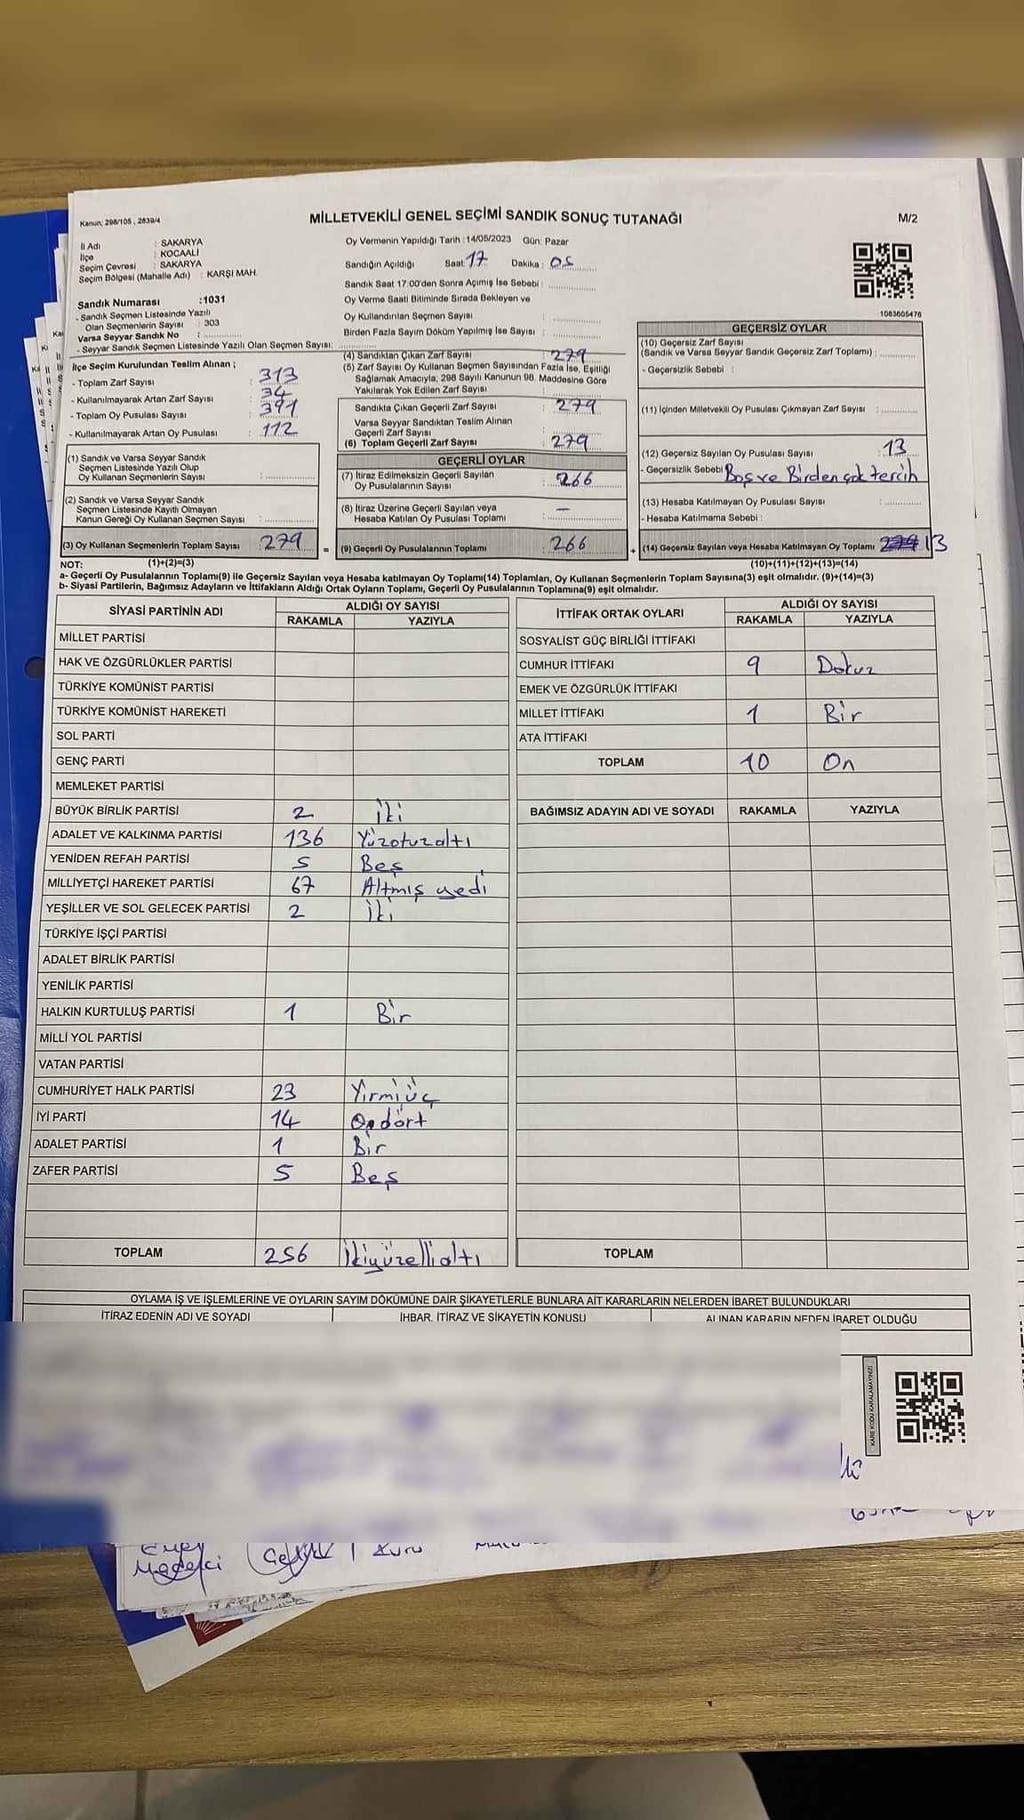 Kanun; 298/105 , 2839/4
MİLLETVEKİLİ GENEL SEÇİMİ SANDIK SONUÇ TUTANAĞI
M/2
İl Adı : SAKARYA
İlçe : KOCAALİ
Seçim Çevresi : SAKARYA
Seçim Bölgesi (Mahalle Adı) : KARŞI MAH.
Sandık Numarası :1031
- Sandık Seçmen Listesinde Yazılı
Olan Seçmenlerin Sayısı : 303
Varsa Seyyar Sandık No :
- Seyyar Sandık Seçmen Listesinde Yazılı Olan Seçmen Sayısı:
Oy Vermenin Yapıldığı Tarih :14/05/2023 Gün: Pazar
Sandığın Açıldığı Saat: 17 Dakika : 05
Sandık Saat 17:00'den Sonra Açımış İse Sebebi :
Oy Verme Saati Bitiminde Sırada Bekleyen ve
Oy Kullandırılan Seçmen Sayısı :
Birden Fazla Sayım Döküm Yapılmış İse Sayısı :
1083605476
İlçe Seçim Kurulundan Teslim Alınan ;
- Toplam Zarf Sayısı : 313
- Kullanılmayarak Artan Zarf Sayısı : 34
- Toplam Oy Pusulası Sayısı : 391
- Kullanılmayarak Artan Oy Pusulası : 112
(1) Sandık ve Varsa Seyyar Sandık
Seçmen Listesinde Yazılı Olup
Oy Kullanan Seçmenlerin Sayısı :
(2) Sandık ve Varsa Seyyar Sandık
Seçmen Listesinde Kayıtlı Olmayan
Kanun Gereği Oy Kullanan Seçmen Sayısı :
(3) Oy Kullanan Seçmenlerin Toplam Sayısı : 279 =
(4) Sandıktan Çıkan Zarf Sayısı : 279
(5) Zarf Sayısı Oy Kullanan Seçmen Sayısından Fazla İse, Eşitliği
Sağlamak Amacıyla, 298 Sayılı Kanunun 98. Maddesine Göre
Yakılarak Yok Edilen Zarf Sayısı :
Sandıkta Çıkan Geçerli Zarf Sayısı : 279
Varsa Seyyar Sandıktan Teslim Alınan
Geçerli Zarf Sayısı :
(6) Toplam Geçerli Zarf Sayısı : 279
GEÇERLİ OYLAR
(7) İtiraz Edilmeksizin Geçerli Sayılan
Oy Pusulalarının Sayısı : 266
(8) İtiraz Üzerine Geçerli Sayılan veya
Hesaba Katılan Oy Pusulası Toplamı : —
(9) Geçerli Oy Pusulalarının Toplamı : 266 +
GEÇERSİZ OYLAR
(10) Geçersiz Zarf Sayısı
(Sandık ve Varsa Seyyar Sandık Geçersiz Zarf Toplamı) :
- Geçersizlik Sebebi :
(11) İçinden Milletvekili Oy Pusulası Çıkmayan Zarf Sayısı :
(12) Geçersiz Sayılan Oy Pusulası Sayısı : 13
- Geçersizlik Sebebi : Boş ve Birden çok tercih
(13) Hesaba Katılmayan Oy Pusulası Sayısı :
- Hesaba Katılmama Sebebi :
(14) Geçersiz Sayılan veya Hesaba Katılmayan Oy Toplamı : 13
NOT: (1)+(2)=(3)
(10)+(11)+(12)+(13)=(14)
a- Geçerli Oy Pusulalarının Toplamı(9) ile Geçersiz Sayılan veya Hesaba katılmayan Oy Toplamı(14) Toplamları, Oy Kullanan Seçmenlerin Toplam Sayısına(3) eşit olmalıdır. (9)+(14)=(3)
b- Siyasi Partilerin, Bağımsız Adayların ve İttifakların Aldığı Ortak Oyların Toplamı, Geçerli Oy Pusulalarının Toplamına(9) eşit olmalıdır.
SİYASİ PARTİNİN ADI ALDIĞI OY SAYISI
RAKAMLA YAZIYLA
MİLLET PARTİSİ
HAK VE ÖZGÜRLÜKLER PARTİSİ
TÜRKİYE KOMÜNİST PARTİSİ
TÜRKİYE KOMÜNİST HAREKETİ
SOL PARTİ
GENÇ PARTİ
MEMLEKET PARTİSİ
BÜYÜK BİRLİK PARTİSİ 2 İki
ADALET VE KALKINMA PARTİSİ 136 Yüzotuzaltı
YENİDEN REFAH PARTİSİ 5 Beş
MİLLİYETÇİ HAREKET PARTİSİ 67 Altmış yedi
YEŞİLLER VE SOL GELECEK PARTİSİ 2 İki
TÜRKİYE İŞÇİ PARTİSİ
ADALET BİRLİK PARTİSİ
YENİLİK PARTİSİ
HALKIN KURTULUŞ PARTİSİ 1 Bir
MİLLİ YOL PARTİSİ
VATAN PARTİSİ
CUMHURİYET HALK PARTİSİ 23 Yirmiüç
İYİ PARTİ 14 Ondört
ADALET PARTİSİ 1 Bir
ZAFER PARTİSİ 5 Beş
TOPLAM 256 İkiyüzellialtı
İTTİFAK ORTAK OYLARI ALDIĞI OY SAYISI
RAKAMLA YAZIYLA
SOSYALİST GÜÇ BİRLİĞİ İTTİFAKI
CUMHUR İTTİFAKI 9 Dokuz
EMEK VE ÖZGÜRLÜK İTTİFAKI
MİLLET İTTİFAKI 1 Bir
ATA İTTİFAKI
TOPLAM 10 On
BAĞIMSIZ ADAYIN ADI VE SOYADI RAKAMLA YAZIYLA
TOPLAM
OYLAMA İŞ VE İŞLEMLERİNE VE OYLARIN SAYIM DÖKÜMÜNE DAİR ŞİKAYETLERLE BUNLARA AİT KARARLARIN NELERDEN İBARET BULUNDUKLARI
İTİRAZ EDENİN ADI VE SOYADI İHBAR, İTİRAZ VE ŞİKAYETİN KONUSU ALINAN KARARIN NEDEN İBARET OLDUĞU
KARE KODU KARALAMAYINIZ!